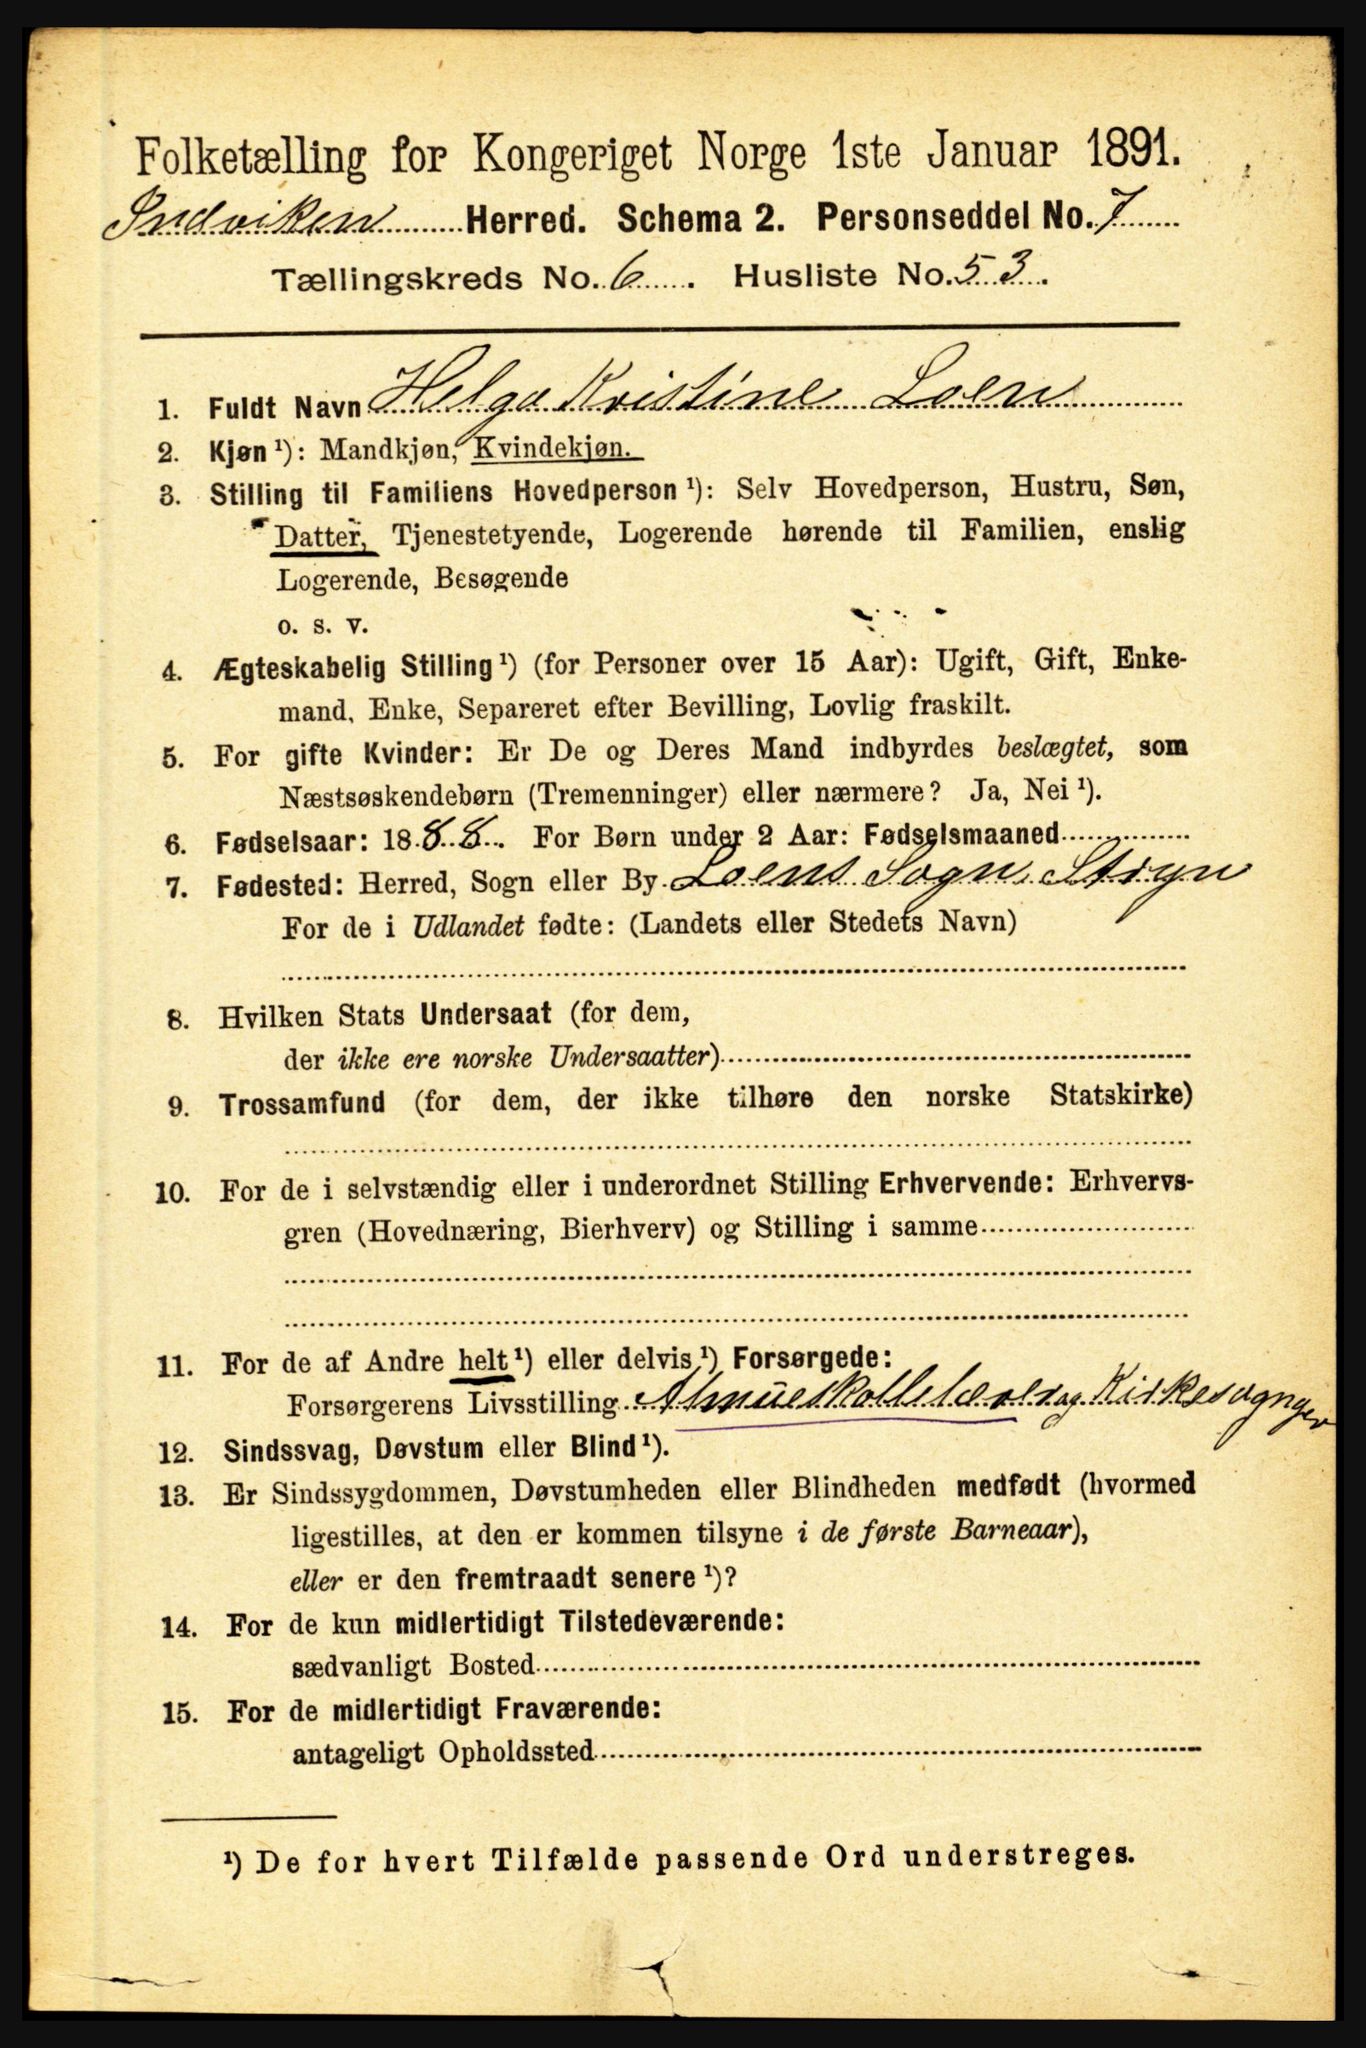 Folketælling for Kongeriget Norge 1ste Januar 1891.
Indviken Herred. Schema 2. Personseddel No. 7
Tællingskreds No. 6. Husliste No. 53.
1. Fuldt Navn Helga Kristine Loen
2. Kjøn ¹): Mandkjøn, Kvindekjøn.
3. Stilling til Familiens Hovedperson ¹): Selv Hovedperson, Hustru, Søn,
Datter, Tjenestetyende, Logerende hørende til Familien, enslig
Logerende, Besøgende
o. s. v.
4. Ægteskabelig Stilling ¹) (for Personer over 15 Aar): Ugift, Gift, Enke-
mand, Enke, Separeret efter Bevilling, Lovlig fraskilt.
5. For gifte Kvinder: Er De og Deres Mand indbyrdes beslægtet, som
Næstsøskendebørn (Tremenninger) eller nærmere? Ja, Nei ¹).
6. Fødselsaar: 1888. For Børn under 2 Aar: Fødselsmaaned
7. Fødested: Herred, Sogn eller By Loens Sogn, Stryn
For de i Udlandet fødte: (Landets eller Stedets Navn)
8. Hvilken Stats Undersaat (for dem,
der ikke ere norske Undersaatter)
9. Trossamfund (for dem, der ikke tilhøre den norske Statskirke)
10. For de i selvstændig eller i underordnet Stilling Erhvervende: Erhvervs-
gren (Hovednæring, Bierhverv) og Stilling i samme
11. For de af Andre helt ¹) eller delvis ¹) Forsørgede:
Forsørgerens Livsstilling Almueskollelærer og Kirkesognger
12. Sindssvag, Døvstum eller Blind ¹).
13. Er Sindssygdommen, Døvstumheden eller Blindheden medfødt (hvormed
ligestilles, at den er kommen tilsyne i de første Barneaar),
eller er den fremtraadt senere ¹)?
14. For de kun midlertidigt Tilstedeværende:
sædvanligt Bosted
15. For de midlertidigt Fraværende:
antageligt Opholdssted
¹) De for hvert Tilfælde passende Ord understreges.